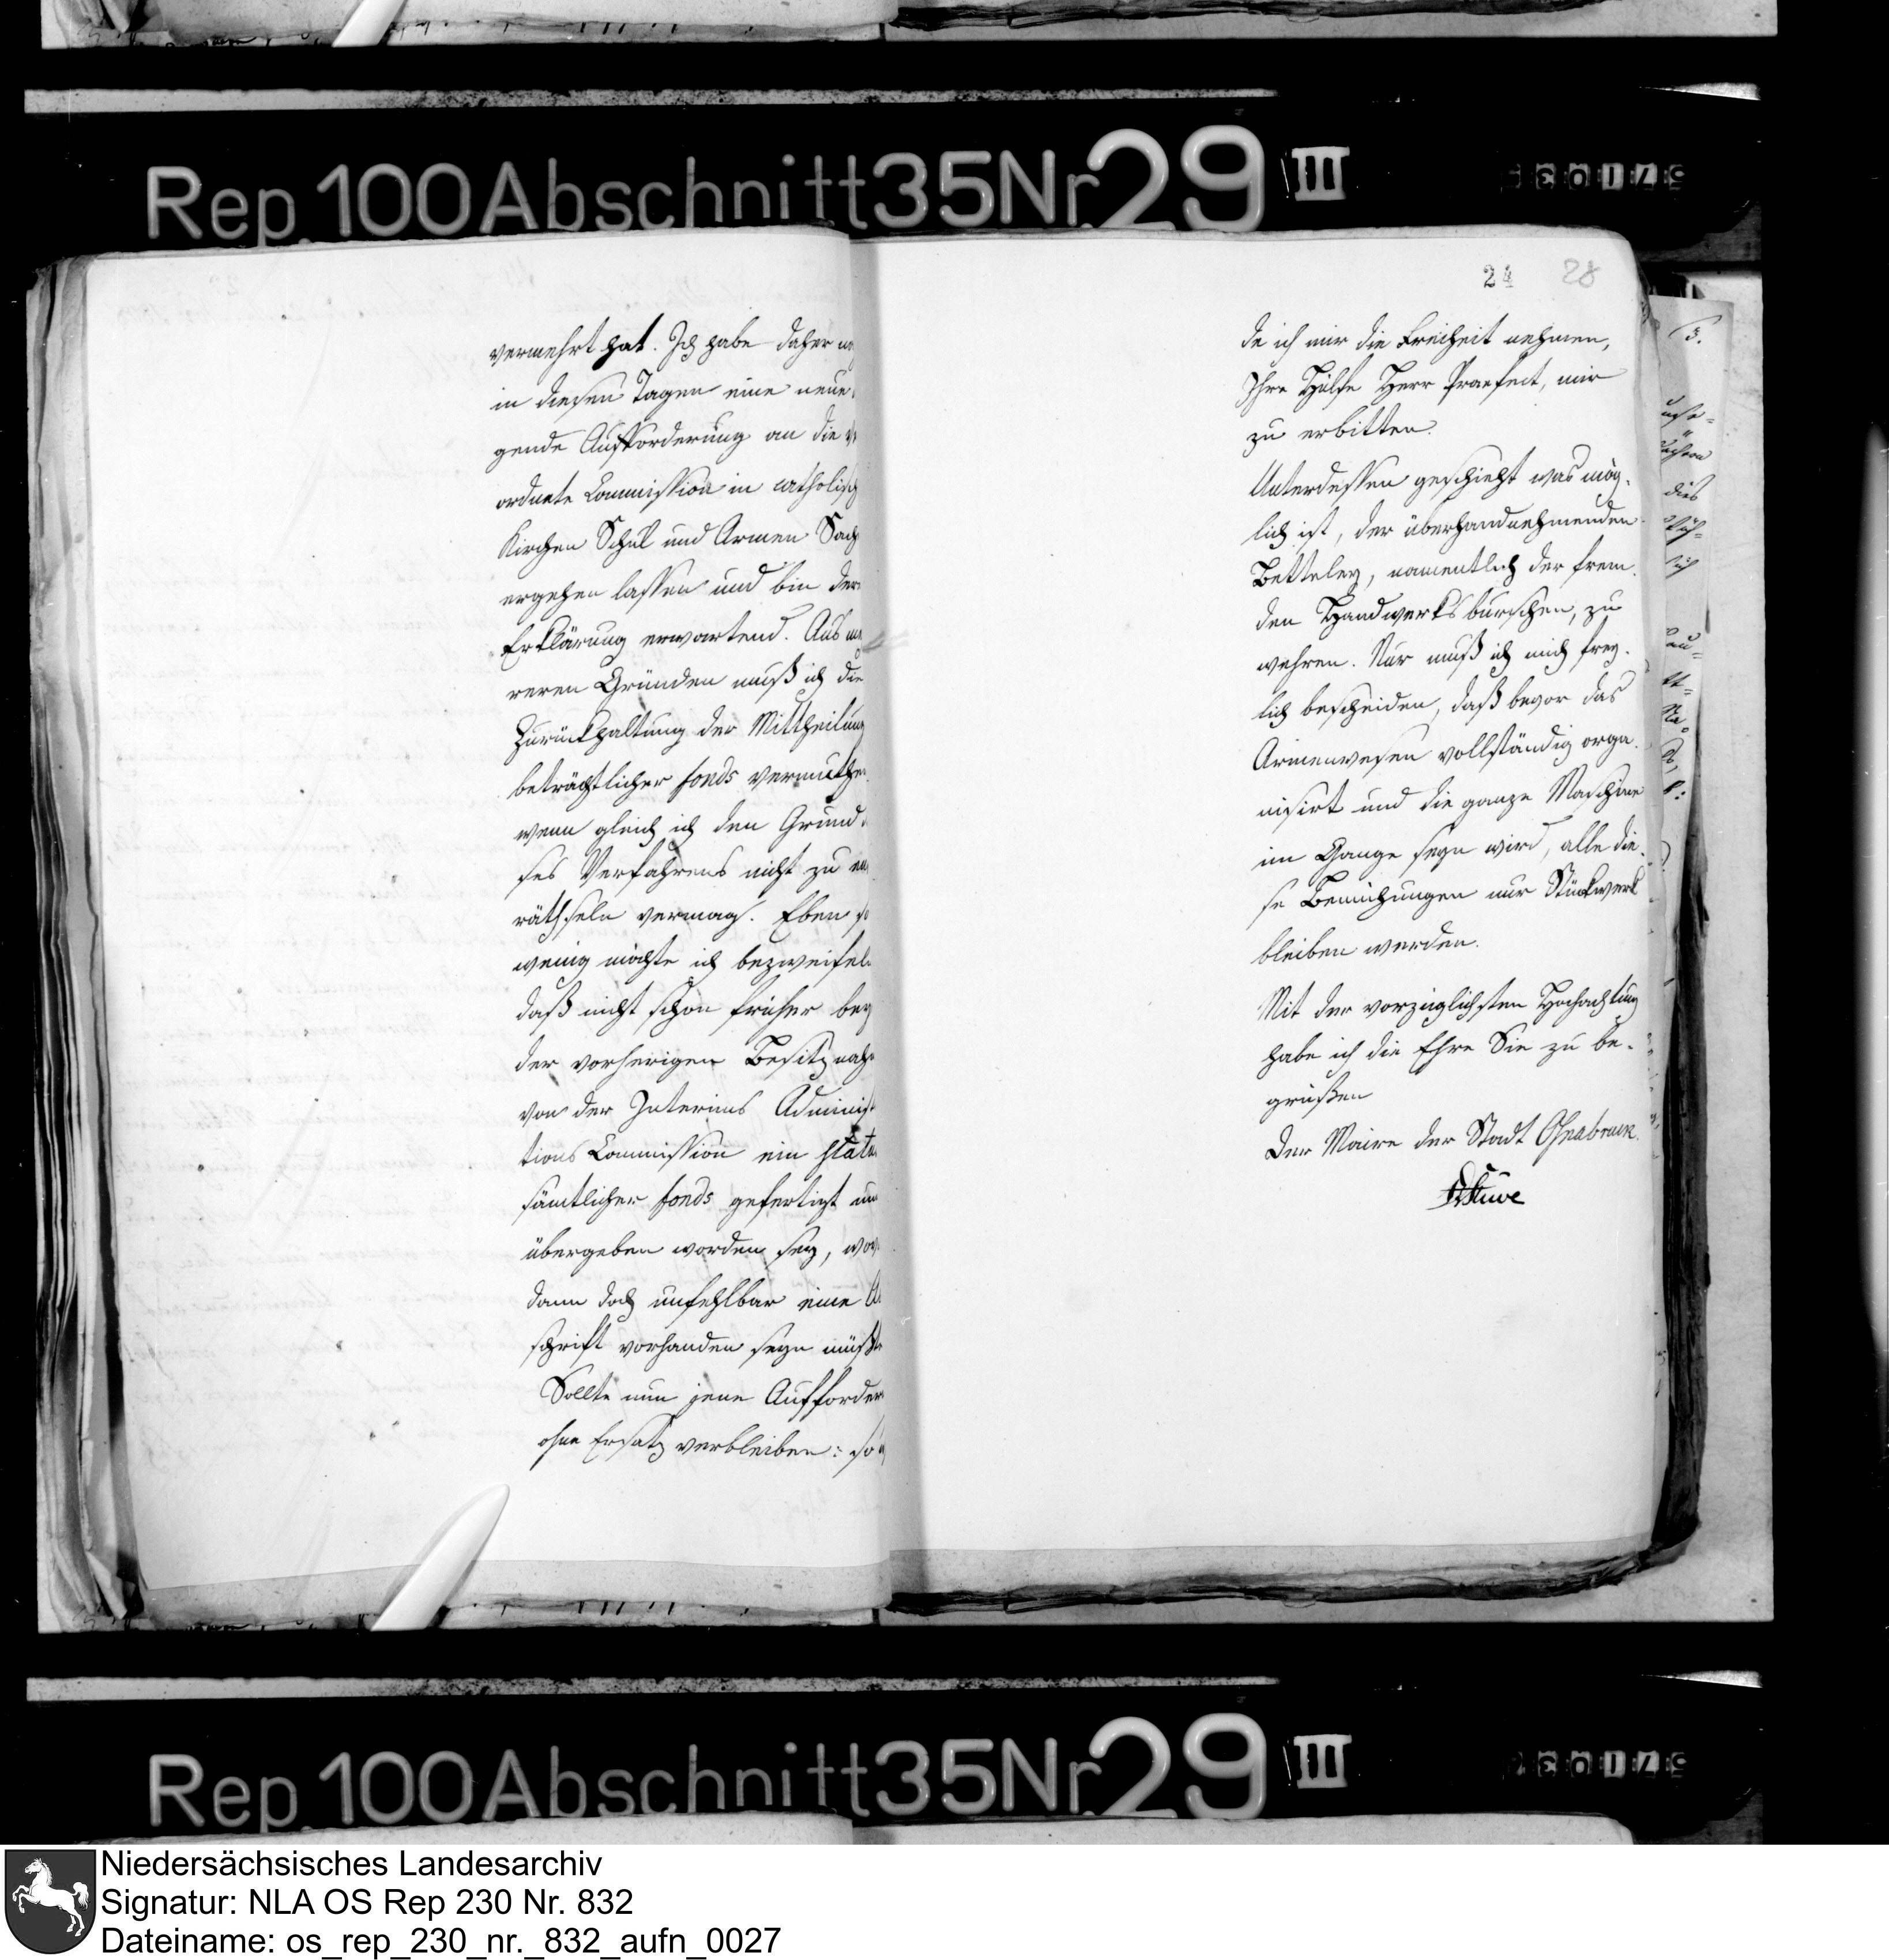 Rep. 100 Abschnitt 35 Nr. 29 III
vermehrt hat. Ich habe daher
in diesen Tagen eine neue
gende Aufforderung an die
ordnete Commission in catholisch
Kirchen Schul und Armen Sach
ergehen lassen und bin der
Erklärung erwartend. Aus
reren Gründen muß ich die
Zurückhaltung der Mittheilung
beträchtlicher fonds vermuthen
wenn gleich ich den Grund
ses Verfahrens nicht zu
räthseln vermag. Eben so
wenig möchte ich bezweifel
daß nicht schon früher bey
der vorherigen Besitznah
von der Interims Administ
tions Commission ein Statu
sämtlicher fonds gefertigt
übergeben worden sey, wo
dann doch unfehlbar eine
schrift vorhanden seyn müßte
Sollte nun jene Aufforder
ohne Ersatz verbleiben: so
24 28
de ich mir die Freiheit nehmen,
Ihre Hülfe Herr Praefect, mir
zu erbitten.
Unterdessen geschieht was mög-
lich ist, der überhandnehmenden
Betteley, namentlich der frem
den Handwerksburschen, zu
wehren. Nur muß ich mich frey-
lich bescheiden, daß bevor das
Armenwesen vollständig orga-
nisirt und die ganze Maschine
im Gange seyn wird, alle die-
se Bemühungen nur Stückwerk
bleiben werden.
Mit der vorzüglichsten Hochachtung
habe ich die Ehre Sie zu be-
grüßen
Der Maire der Stadt Osnabrück.
Stüve
Rep. 100 Abschnitt 35 Nr. 29 III
Niedersächsisches Landesarchiv
Signatur: NLA OS Rep 230 Nr. 832
Dateiname: os_rep_230_nr._832_aufn_0027